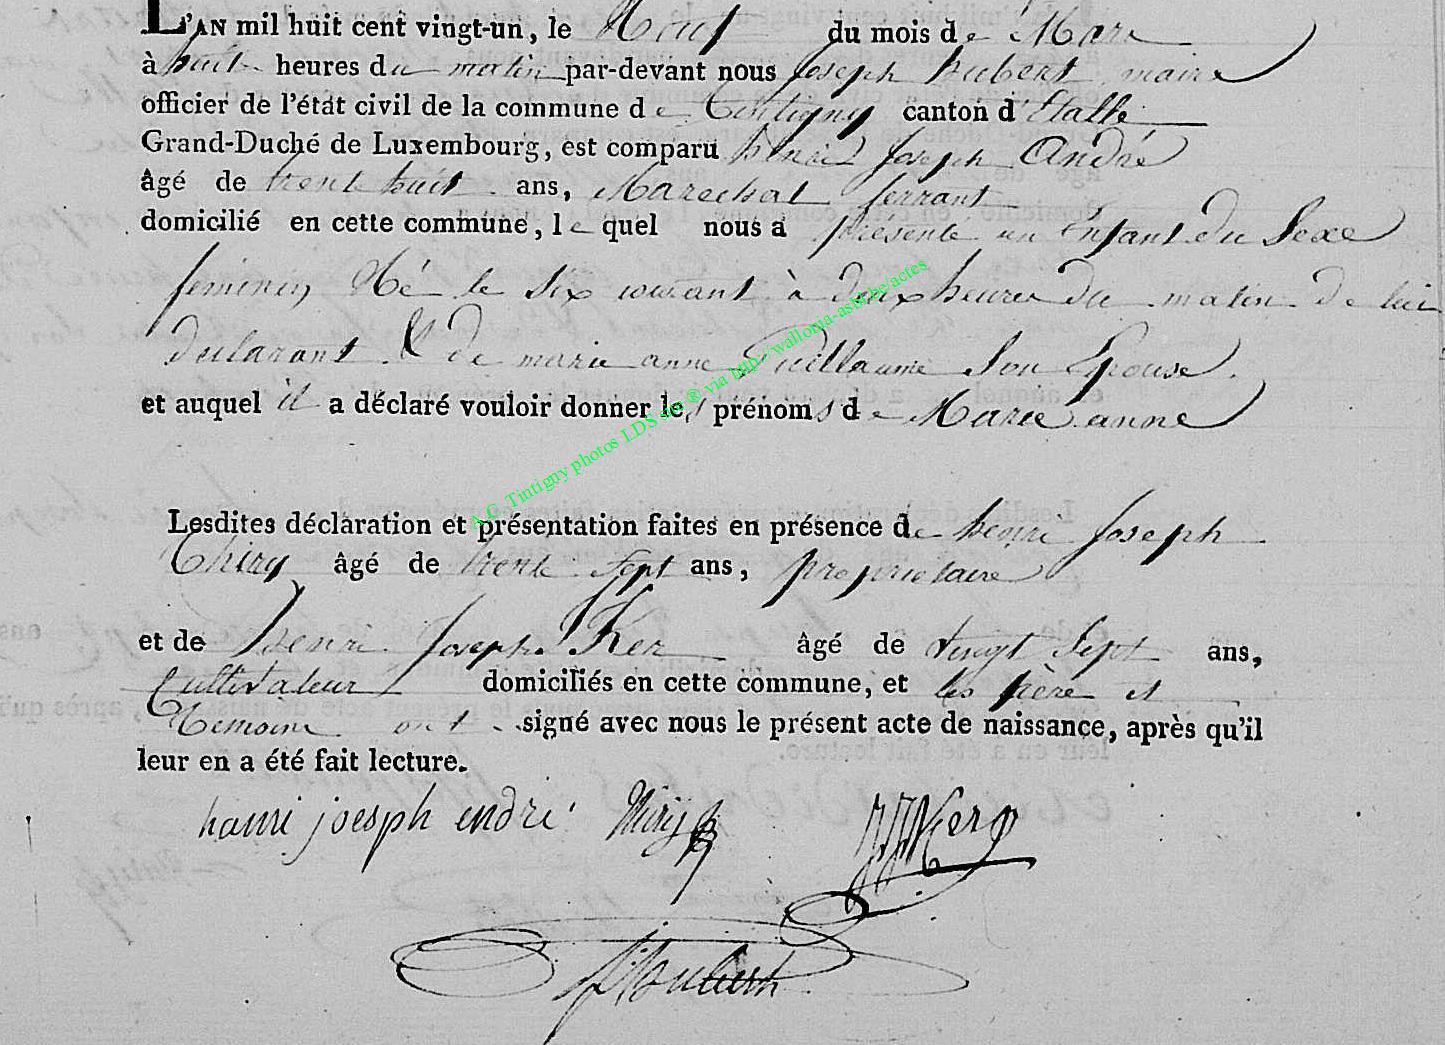 L'AN mil huit cent vingt-un, le Huit du mois de Mars
à huit heures du matin par-devant nous Joseph hubert maire
officier de l'état civil de la commune de Tintigny canton d'Etalle
Grand-Duché de Luxembourg, est comparu henri Joseph André
âgé de trente huit ans, Marechal ferrant
domicilié en cette commune, lequel nous a présenté un Enfant du Sexe
feminin Né le Six courant à deux heures du matin de lui
declarant Et de marie anne Guillaume Son Epouse
et auquel il a déclaré vouloir donner les prénoms de Marie anne
A.G. Tintigny photos LDS site ® via http://wallonia-asbl.be/actes
Lesdites déclaration et présentation faites en présence de henri Joseph
Thiry âgé de trente Sept ans, proprietaire
et de henri Joseph Ker âgé de vingt Sept ans,
Cultivateur domiciliés en cette commune, et les père et
temoins ont signé avec nous le présent acte de naissance, après qu'il
leur en a été fait lecture.
hanri joesph endré Thiry
hubert